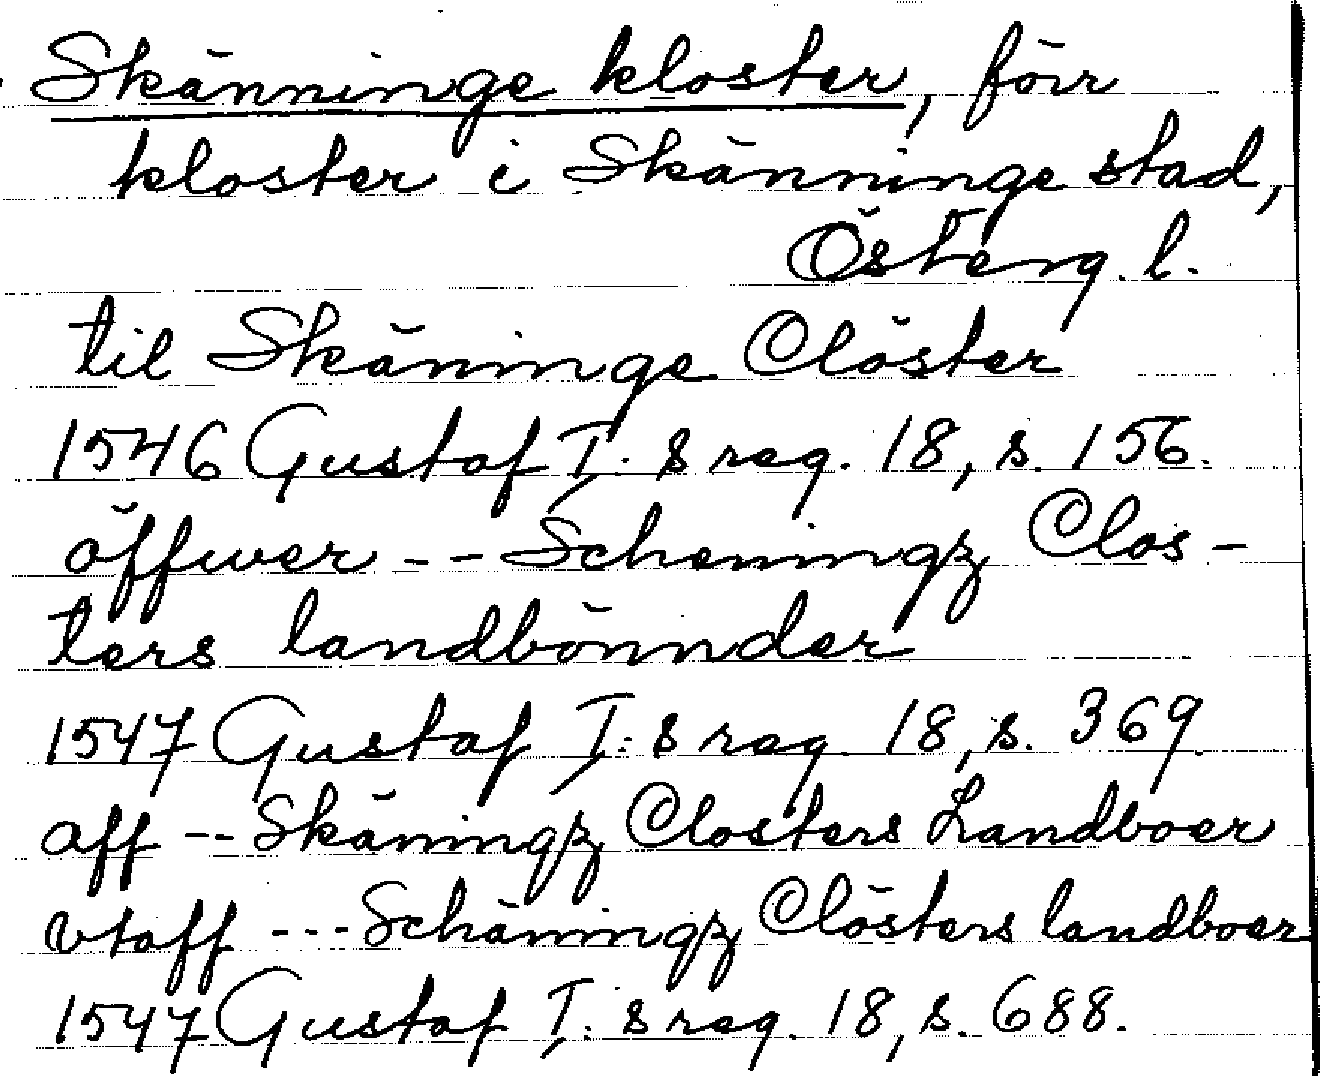 Skänninge kloster, förr
kloster i Skänninge stad,
Österg. l.
til Skäninge Clöster
1546 Gustaf I:s reg. 18, s. 156.
öffwer -- Scheningz Clos-
ters landbönnder
1547 Gustaf I:s reg. 18, s. 369.
aff -- Skäningz Closters Landboer
vtaff --- Schäningz Clösters landboer
1547 Gustaf I:s reg. 18, s. 688.